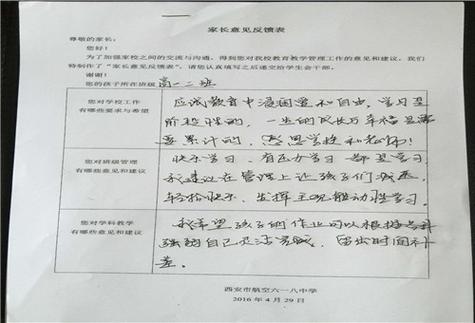 家长意见反馈表
尊敬的家长:
您好!
为了加强家校之间的交流与沟通,得到您对我校教育教学管理工作的意见和建议,我们
特制作了“家长意见反馈表”,请您认真填写之后递交给学生会干部。
谢谢!
您的孩子所在班级 高一二班
您对学校工作
有哪些要求与希望
应试教育中浸润爱和自由,学习是
阶段性的,一生的成长与幸福是需
要累计的,感恩学校和老师!
您对班级管理
有哪些意见和建议
快乐学习、有压力学习都是学习
我建议在管理上让孩子们
轻松快乐,发挥主观能动性学习。
您对学科教学
有哪些意见和建议
我希望孩子的作业可以根据各科
强弱自己灵活完成,留出时间补
差。
西安市航空六一八中学
2016 年 4 月 29 日